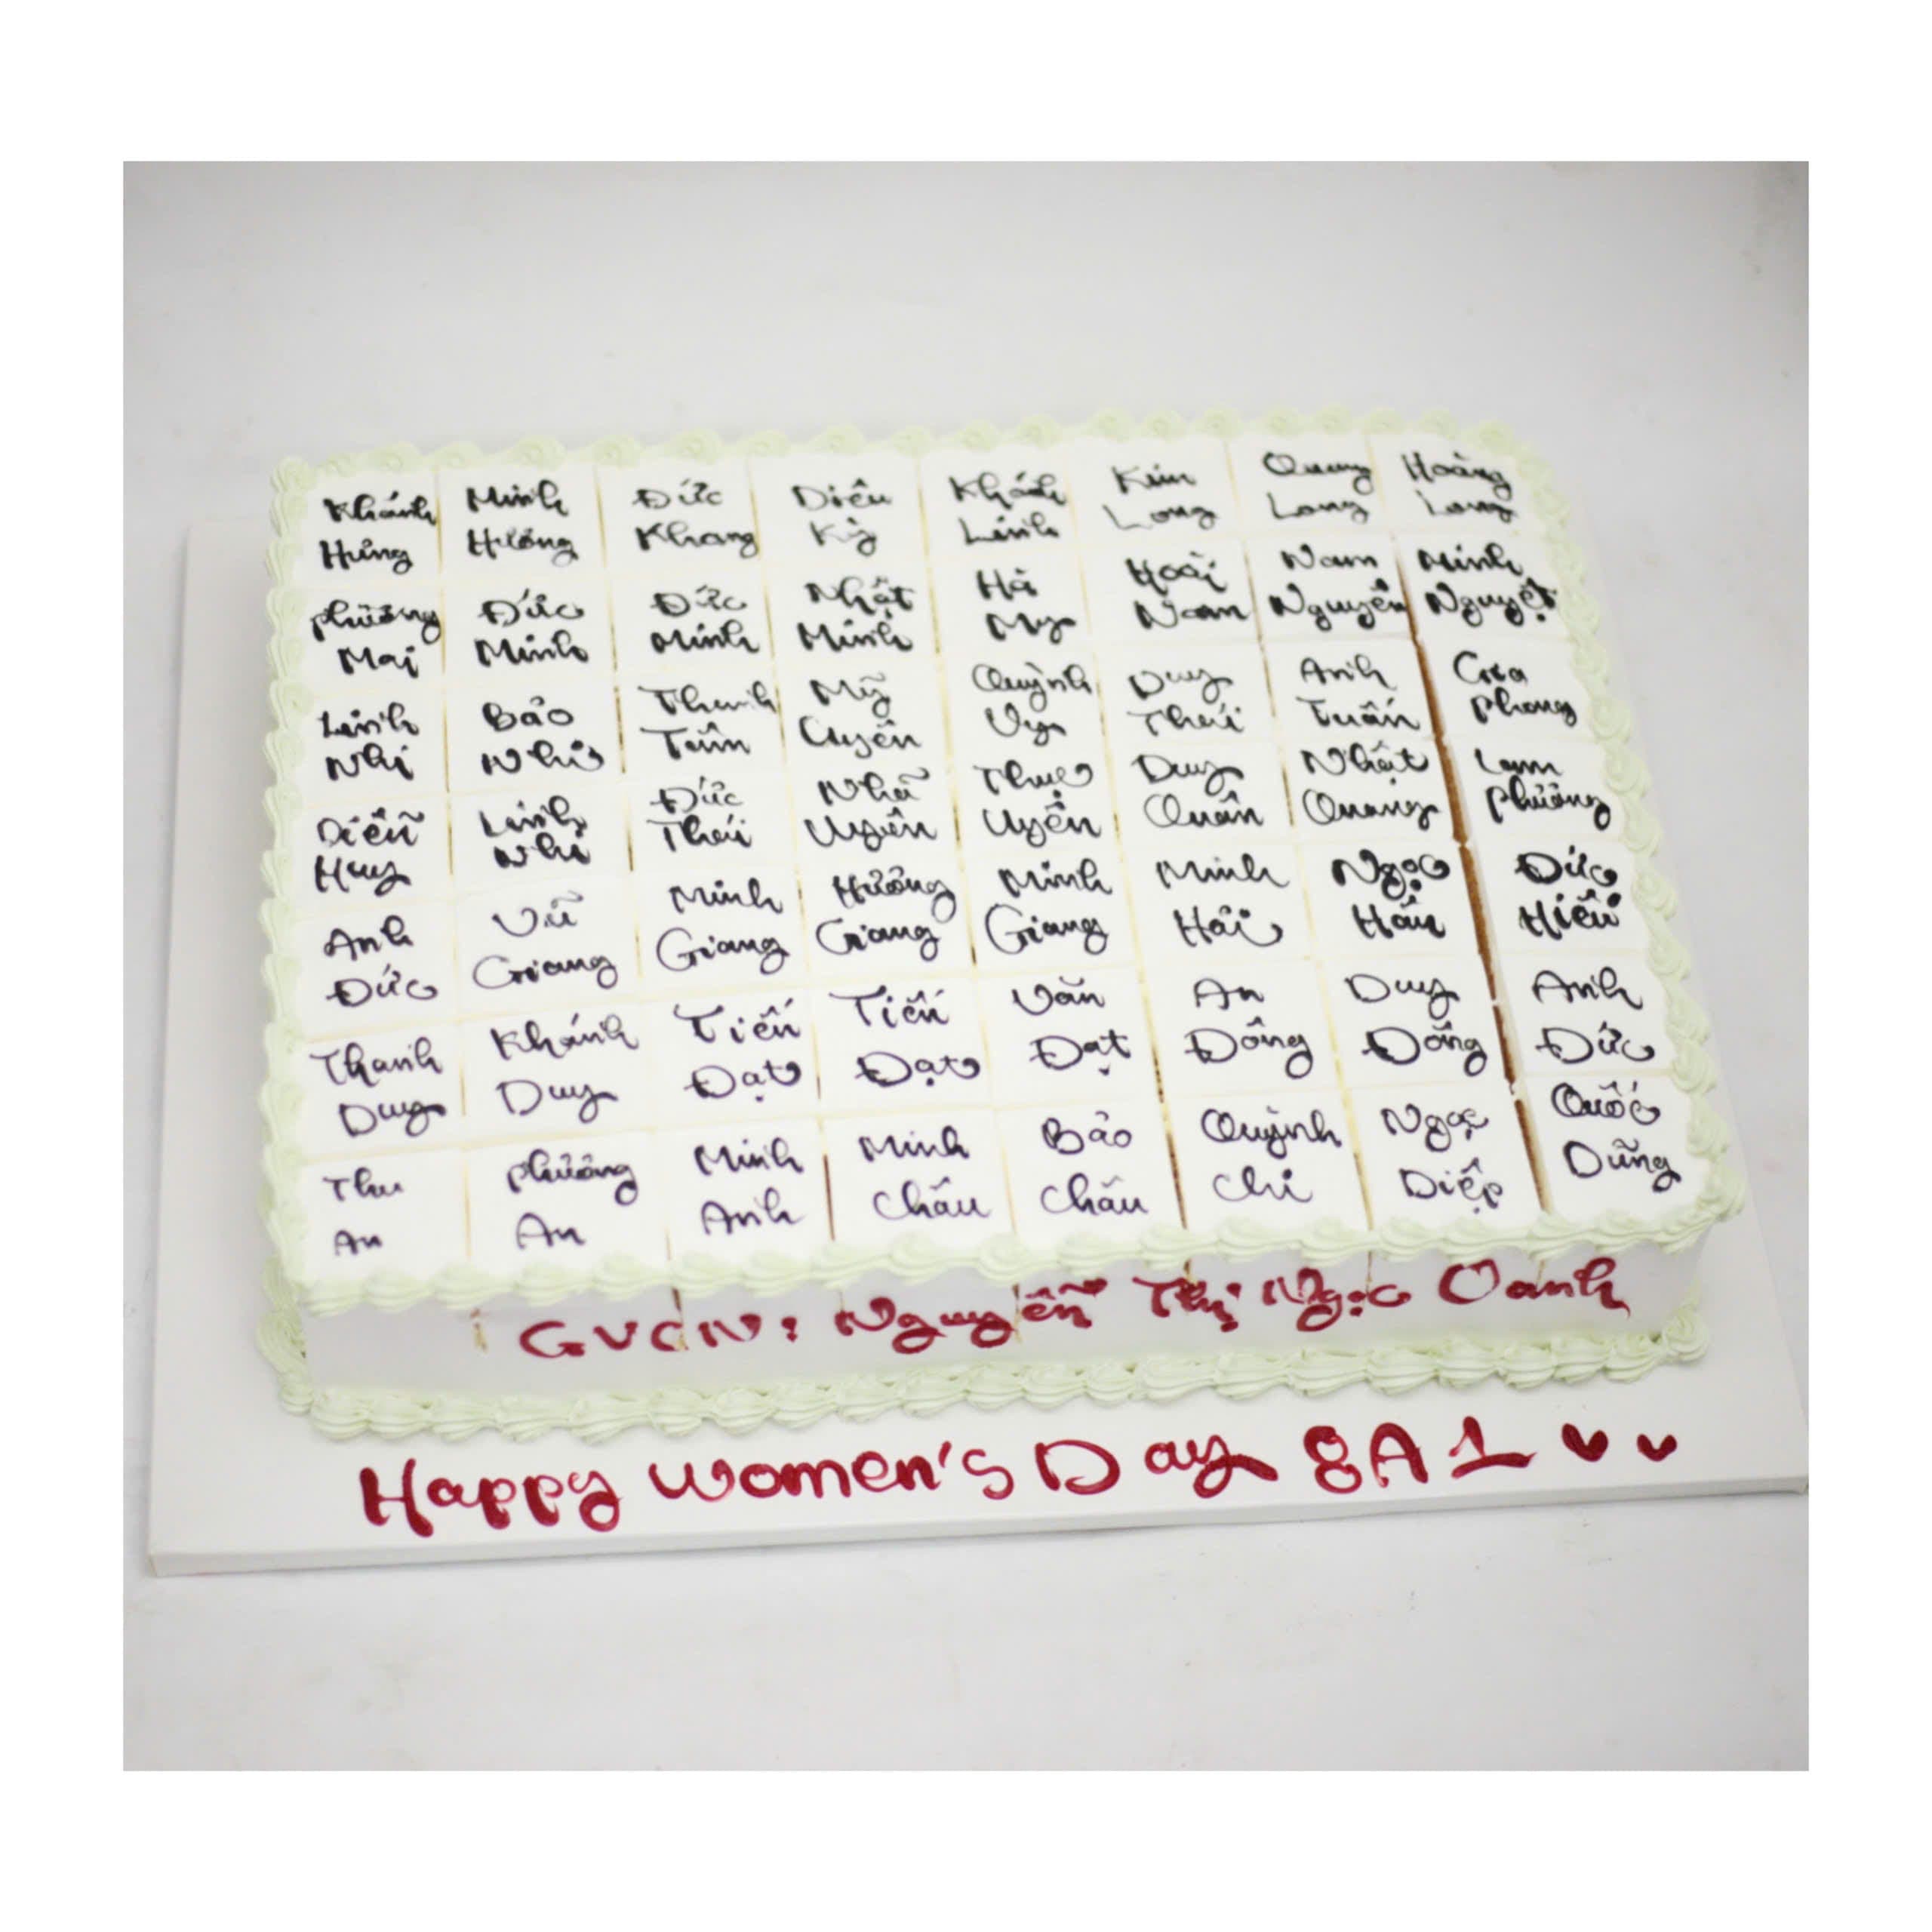 Khánh Hưng
Minh Hương
Đức Khang
Diệu Kỳ
Khánh Linh
Kim Long
Quang Long
Hoàng Long
Phương Mai
Đức Minh
Đức Minh
Nhật Minh
Hà My
Hoài Nam
Nam Nguyên
Minh Nguyệt
Linh Nhi
Bảo Như
Thanh
Mỹ Uyên
Quỳnh Vy
Duy Thái
Anh Tuấn
Gia Phong
Diễn Huy
Linh Nhi
Đức Thái
Nhã Uyên
Thục Uyên
Duy Quân
Nhật Quang
Lam Phương
Anh Đức
Vũ Giang
Minh Giang
Hương Giang
Minh Giang
Minh Hải
Ngọc Hân
Đức Hiếu
Thanh Duy
Khánh Duy
Tiến Đạt
Tiến Đạt
Văn Đạt
An Đông
Duy Đông
Anh Đức
Thu An
Phương An
Minh Anh
Minh Châu
Bảo Châu
Quỳnh Chi
Ngọc Diệp
Quốc Dũng
GVCN: Nguyễn Thị Ngọc Oanh
Happy Women's Day 8A1